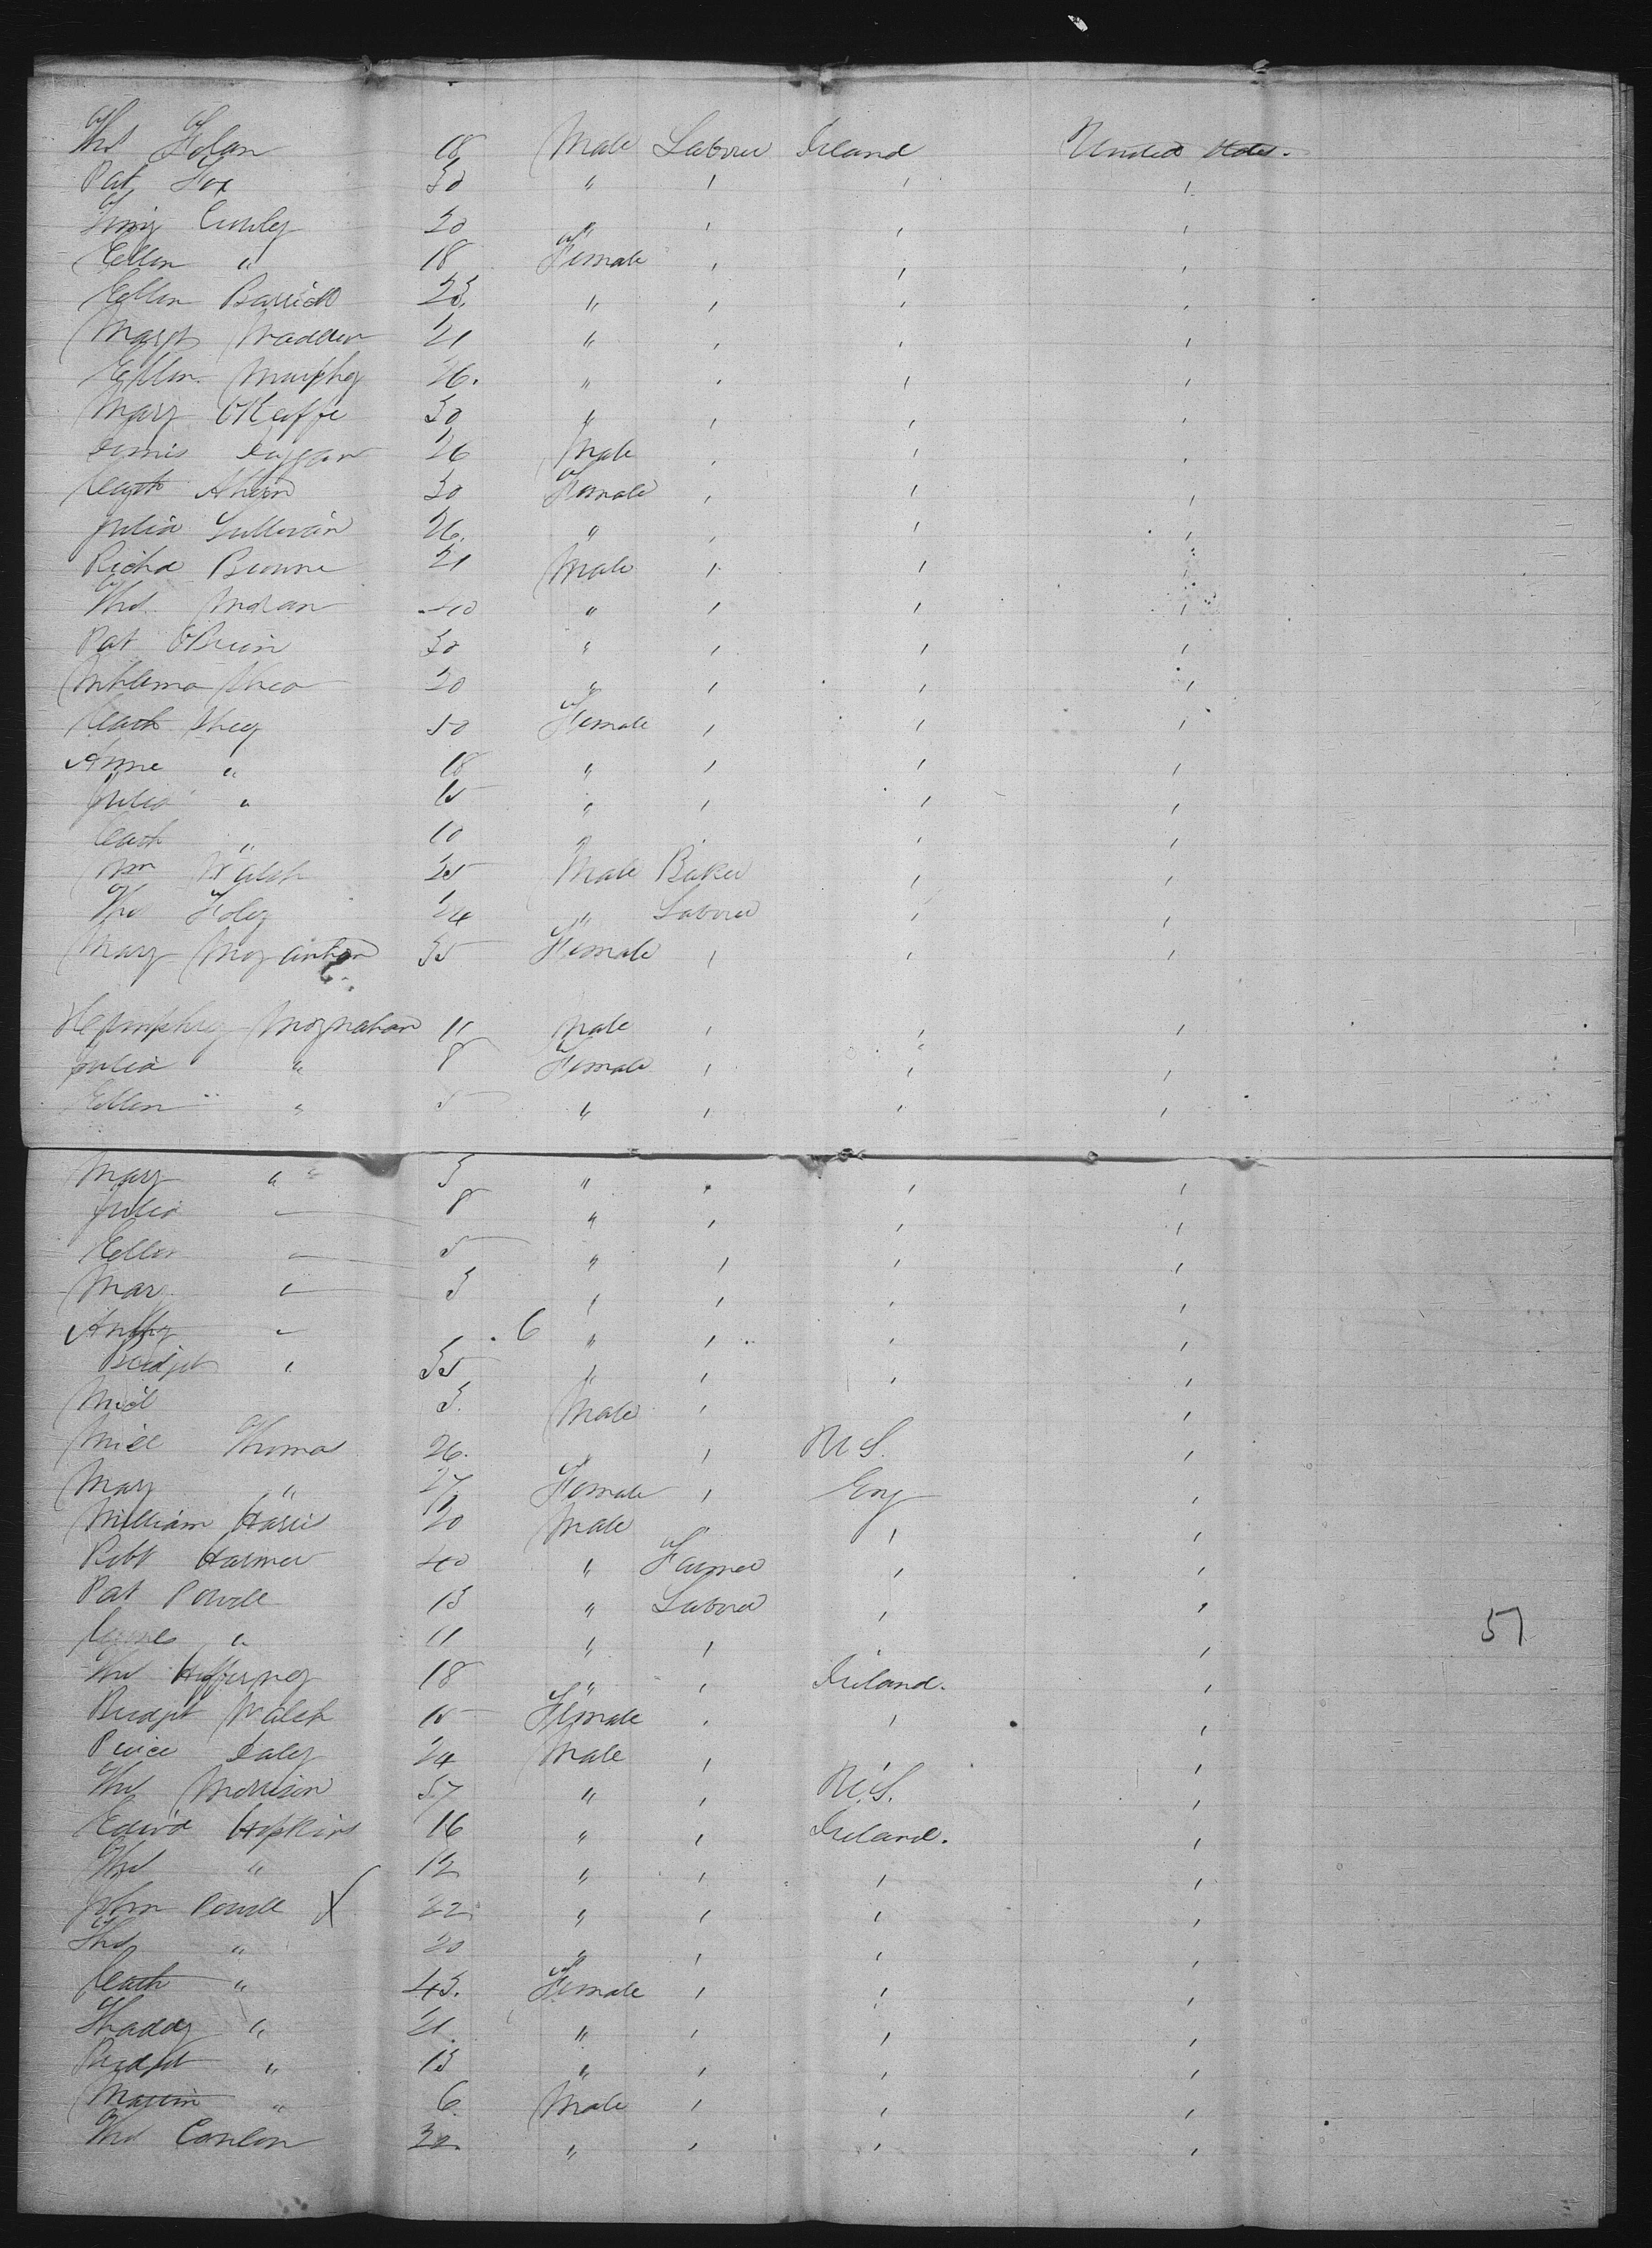 Thos Folan 18 Male Labourer Ireland United States.
Pat Fox 30 " " " "
Timy Curley 20 " " " "
Ellen " 18 Female " " "
Ellen Barrick 23. " " " "
Margt Madden 21 " " " "
Ellen Murphy 26. " " " "
Mary O'Keffe 30 " " " "
Dennis Duggan 26 Male " " "
Cath Ahern 30 Female " " "
Julia Sullivan 26. " " " "
Richd Browne 21 Male " " "
Thos Moran 40 " " " "
Pat O'Brien 30 " " " "
20 " " " "
Cath Shey 50 Female " " "
Anne " 18 " " " "
Julia " 15 " " " "
Cath " 10 " " " "
Wm Walsh 25 Male Baker " "
Thos Foley 24 " Labourer " "
Mary Moynihan 35 Female " " "
Humphrey Moynahan 11 Male " " "
Julia " 8 Female " " "
Ellen " 5 " " " "
Mary " 3 " " " "
Julia " 8 " " " "
Ellen " 5 " " " "
Mary " 3 " " " "
" 6 " " " "
Bridget " 35 " " " "
Micl 3. Male " "
Micl Thomas 26. " " U.S. "
Mary " 27 Female " Eng "
William Harris 20 Male " "
Robt Harmer 40 " Farmer " "
Pat Powell 13 " Labourer " "
James " 11 " " " "
Thos Hefferney 18 " " Ireland. "
Bridget Walsh 15 Female " " "
Pierce Daley 24 Male " "
Thos Morrison 57 " " U.S. "
Edwd Hopkins 16 " " Ireland. "
Thos " 12 " " " "
John Powell X 22 " " " "
Thos " 20 " " " "
Cath " 43. Female " " "
Thaddy " 21. " " " "
Bridget " 13 " " " "
Martin " 6. Male " " "
Thos Conlon 30. " " " "
51